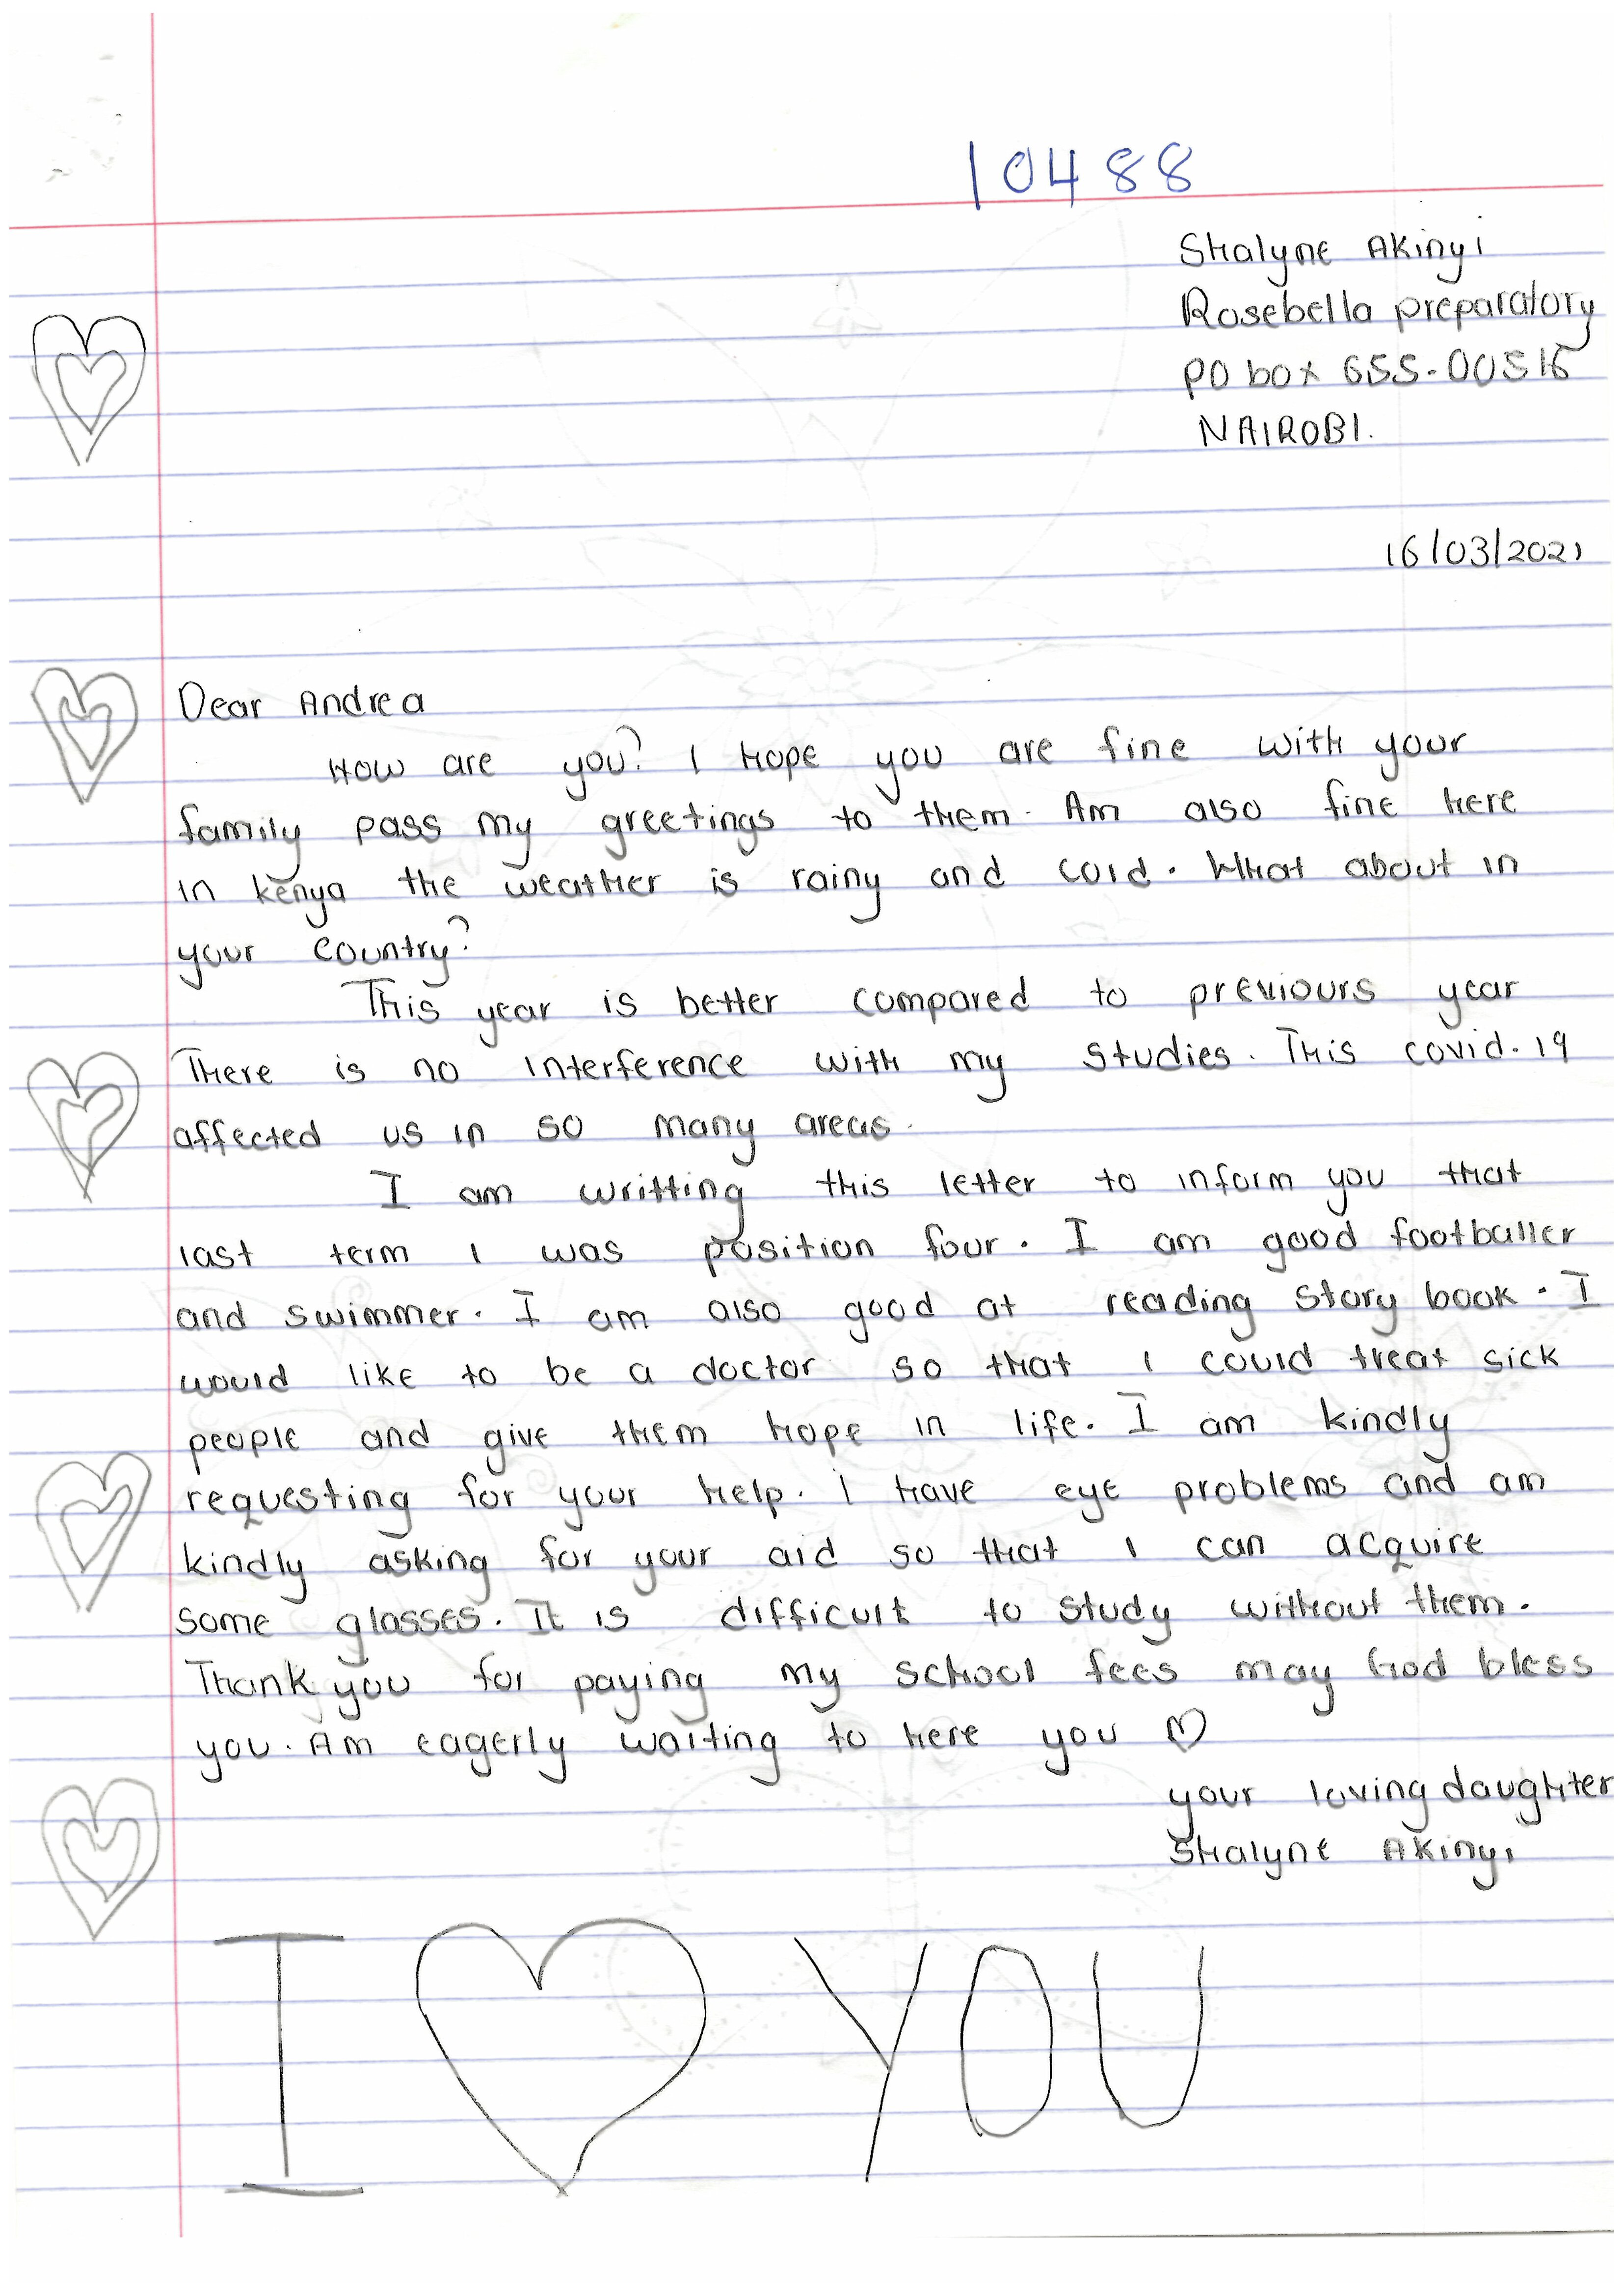 10488
Shalyne Akinyi
Rosebella preparatory
PO box 655-00515
NAIROBI.
16/03/2021
Dear Andrea
How are you? I hope you are fine with your
family pass my greetings to them. Am also fine here
in kenya the weather is rainy and cold. What about in
your country?
This year is better compared to previours year
There is no interference with my studies. This covid.19
affected us in so many areas.
I am writting this letter to inform you that
last term I was position four. I am good footballer
and swimmer. I am also good at reading story book. I
would like to be a doctor so that I could treat sick
people and give them hope in life. I am kindly
requesting for your help. I have eye problems and am
kindly asking for your aid so that I can acquire
some glasses. It is difficult to study without them.
Thank you for paying my school fees may God bless
you. Am eagerly waiting to here you ♡
your loving daughter
Shalyne Akinyi
I ♡ YOU